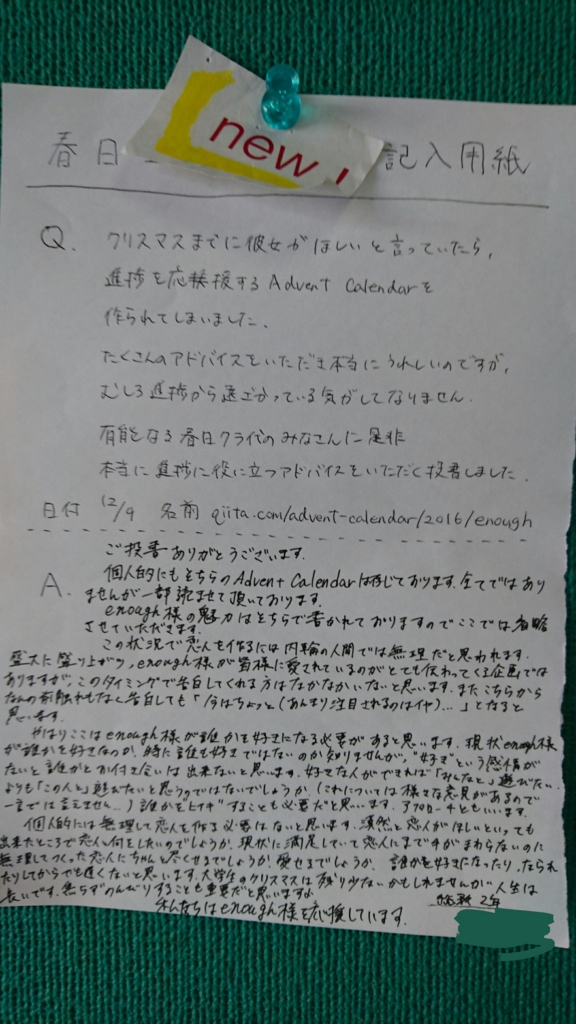 new!
春日
記入用紙
Q. クリスマスまでに彼女がほしいと言っていたら,
進捗を応援するAdvent Calendarを
作られてしまいました.
たくさんのアドバイスをいただき本当にうれしいのですが,
むしろ進捗から遠ざかっている気がしてなりません.
有能となる春日クライアのみなさんに是非
本当に進捗に役に立つアドバイスをいただく投書しました.
日付 12/9 名前 qiita.com/advent-calendar/2016/enough
ご投書ありがとうございます.
A. 個人的にもそちらのAdvent Calendarは存じております.全てではあり
ませんが一部読ませて頂いております.
enough様の魅力はそちらで書かれておりますのでここでは省略
させていただきます.
この状況で恋人を作るには内輪の人間では無理だと思われます.
盛大に盛り上がり,enough様が皆様に愛されているのがとても伝わってくる企画では
ありますが,このタイミングで告白してくれる方はなかなかいないと思います.またこちらから
なんの前触れもなく告白しても「今はちょっと(あんまり注目されるのはイヤ)...」となると
思います.
やはりここはenough様が誰かを好きになる必要があると思います.現状enough様
が誰かを好きなのか,特に誰も好きではないのか知りませんが,"好き"という感情が
ないと誰かとお付き合いは出来ないと思います.好きな人ができれば「みんなと」遊びたい
よりも「この人と」遊びたいと思うのではないでしょうか(これについては様々な意見があるので
一言では言えません...)誰かを"ヒイキ"することも必要だと思います.アプローチともいいます.
個人的には無理して恋人を作る必要はないと思います.漠然と恋人がほしいといっても
出来たところで恋人と何をしたいのでしょうか.現状に満足していて恋人にまで手がまわらないのに
無理してつくった恋人にちゃんと尽くせるでしょうか,愛せるでしょうか.誰かを好きになったり,なられ
たりしてからでも遅くないと思います.大学生のクリスマスは残り少ないかもしれませんが人生は
長いです.焦らずのんびりすることも重要だと思いますよ
そんなちはenough様を応援しています.
2年